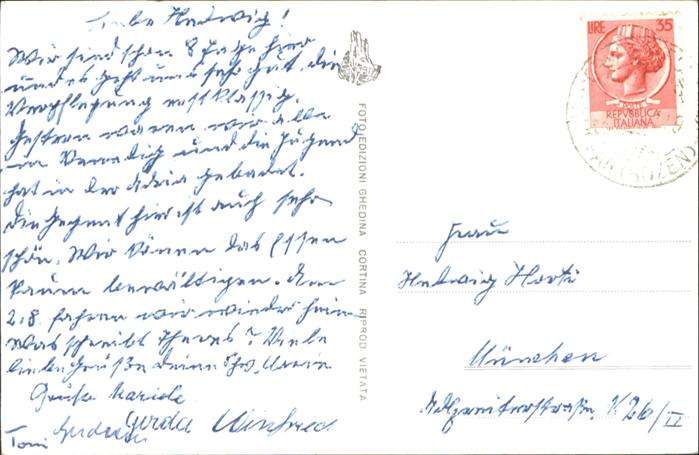 Liebe Hedwig!
Wir sind schon 8 Tage hier
und es geht uns sehr gut. die
Verpflegung erstklassig.
Gestern waren wir alle
in Venedig und die Jugend
hat in der Adria gebadet.
die Gegend hier ist auch sehr
schön. Wir können das Essen
kaum bewältigen. Am
2.8. fahren wir wieder heim
Was schreibt Theres? Viele
liebe Grüße deine Schw. Maria
Grüße
Gerda Winfried
Toni
FOTO EDIZIONI GHEDINA CORTINA RIPROD VIETATA
LIRE 35
REPVBBLICA
ITALIANA
Frau
Hedwig
München